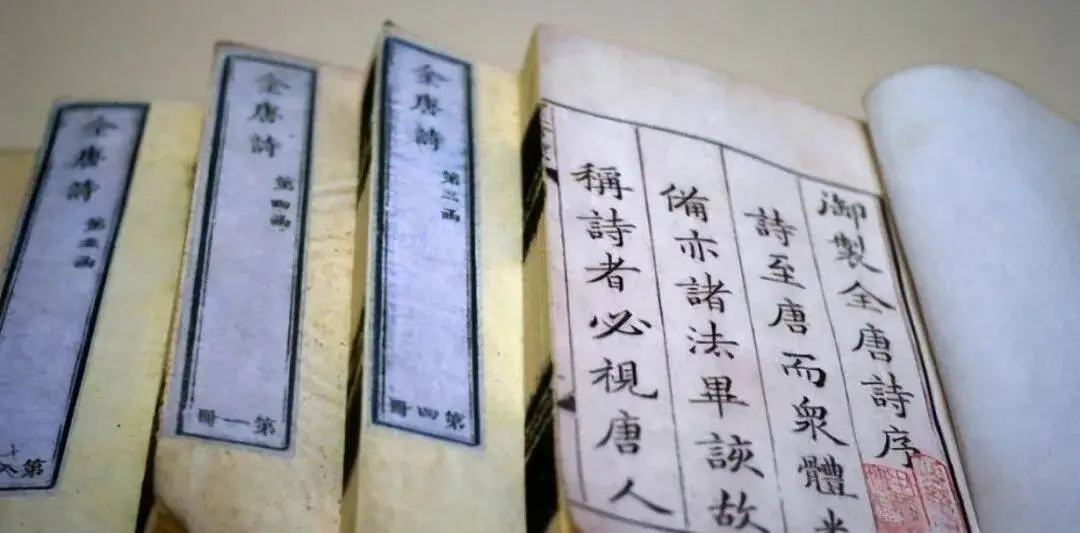 御製全唐詩序
詩至唐而衆體
備亦諸法畢該故
稱詩者必視唐人
全唐詩
第三函
第四冊
全唐詩
第四函
第一冊
全唐詩
第五函
第